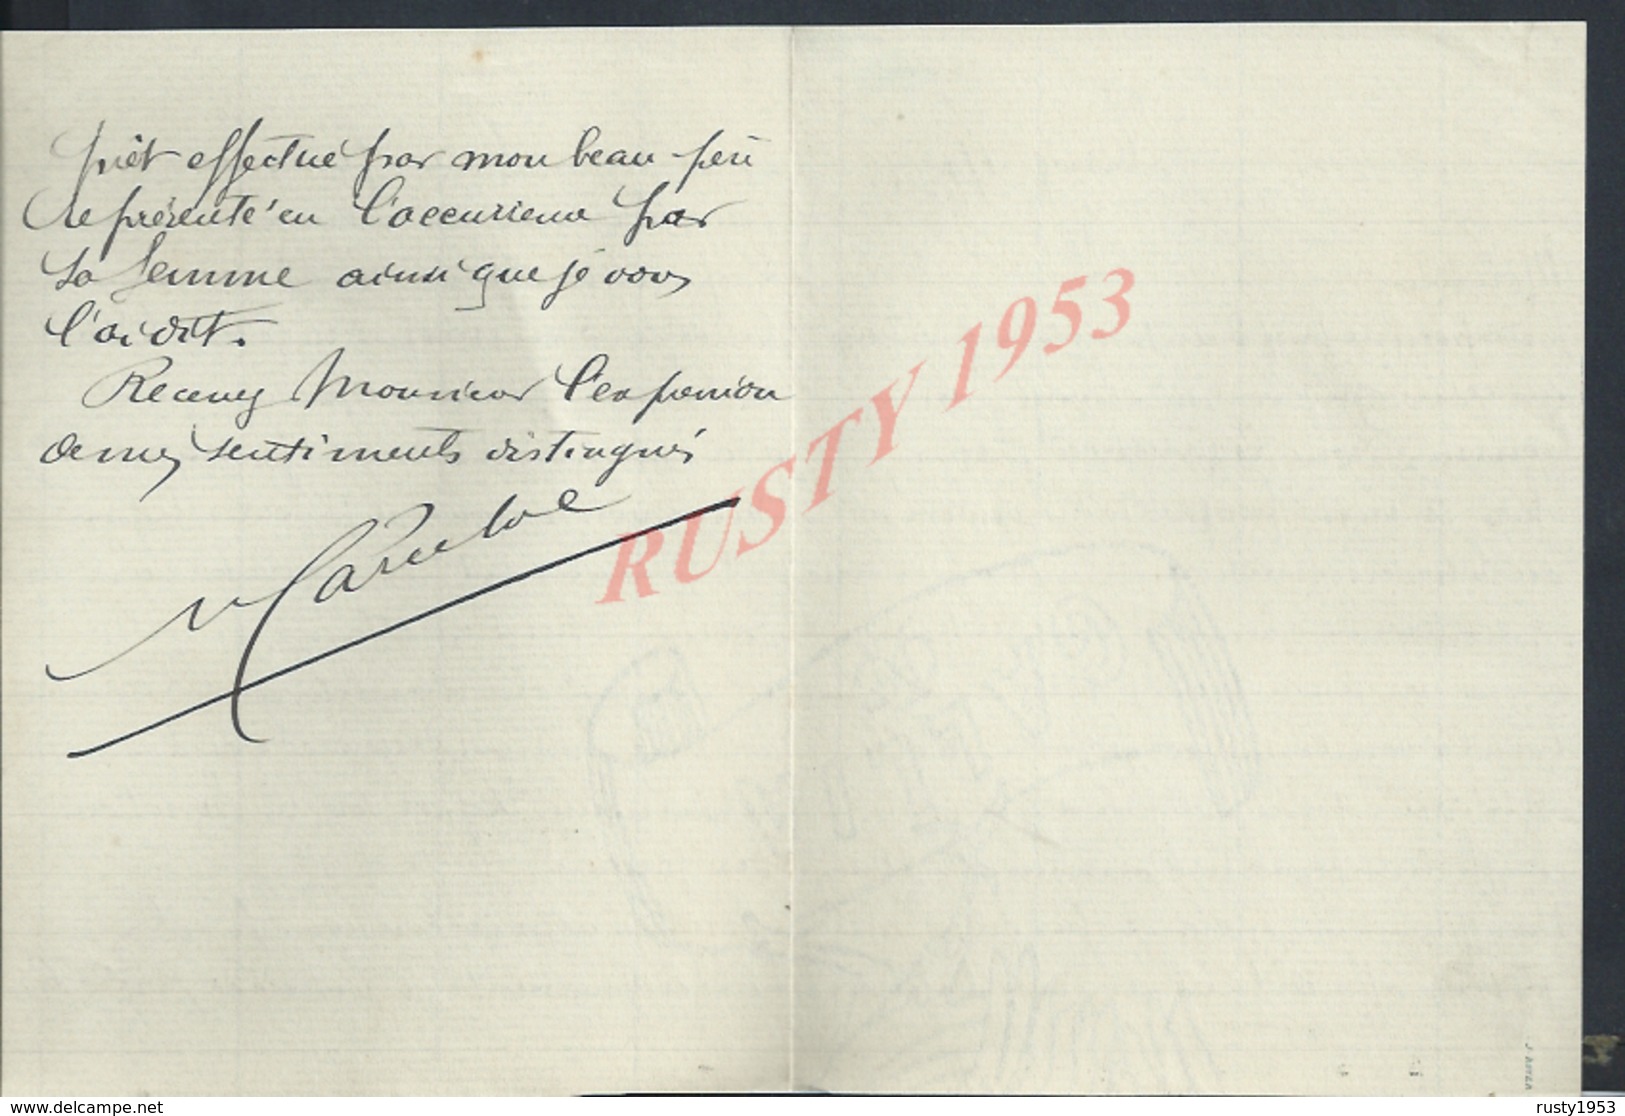 prêt effectué par mon beau-père
représenté en l'occurrence par
sa femme ainsi que je vous
l'ai dit.
Recevez Monsieur l'expression
de mes sentiments distingués
RUSTY 1953
www.delcampe.net
rusty1953